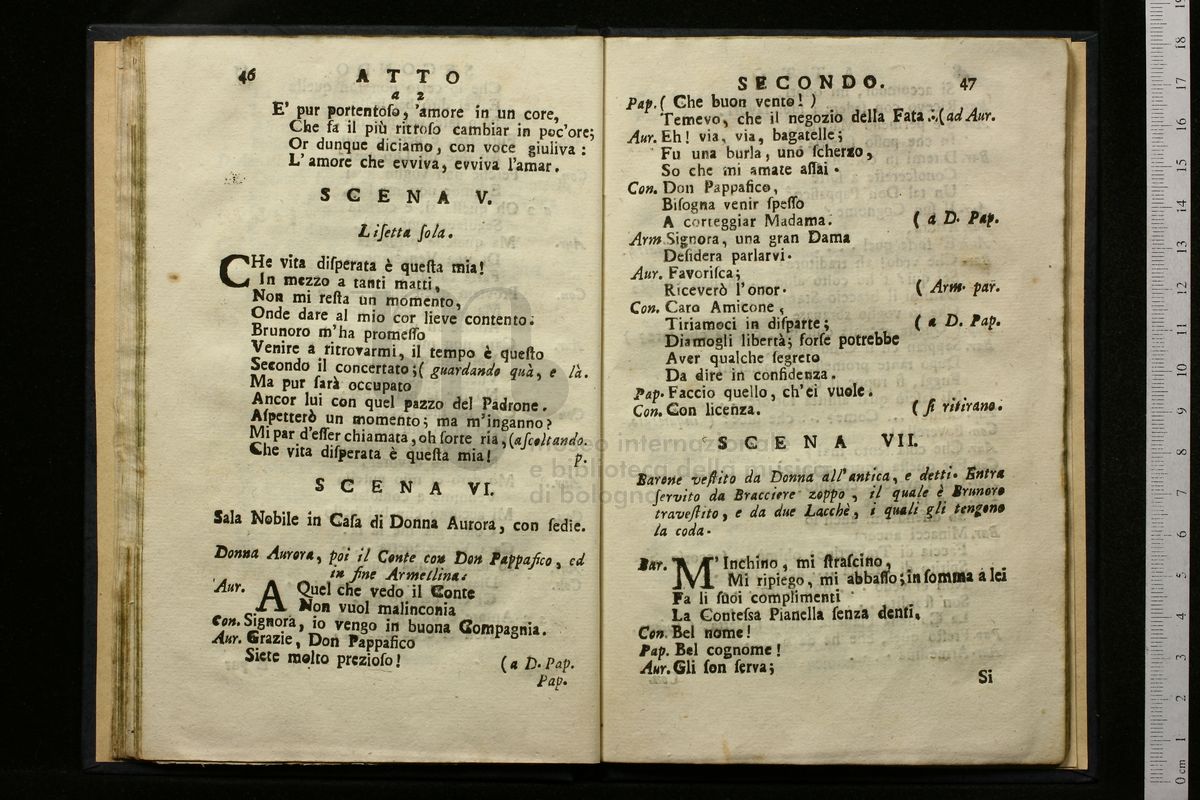 46 ATTO
a 2
E' pur portentoso, 'amore in un core,
Che fa il più ritroso cambiar in poc'ore;
Or dunque diciamo, con voce giuliva:
L'amore che evviva, evviva l'amar.
SCENA V.
Lisetta sola.
CHe vita disperata è questa mia!
In mezzo a tanti matti,
Non mi resta un momento,
Onde dare al mio cor lieve contento.
Brunoro m'ha promesso
Venire a ritrovarmi, il tempo è questo
Secondo il concertato; ( guardando quà, e là.
Ma pur sarà occupato
Ancor lui con quel pazzo del Padrone.
Aspetterò un momento; ma m'inganno?
Mi par d'esser chiamata, oh sorte ria, (ascoltando.
Che vita disperata è questa mia! p.
SCENA VI.
Sala Nobile in Casa di Donna Aurora, con sedie.
Donna Aurora, poi il Conte con Don Pappafico, ed
in fine Armellina.
Aur. A Quel che vedo il Conte
Non vuol malinconia
Con. Signora, io vengo in buona Compagnia.
Aur. Grazie, Don Pappafico
Siete molto prezioso! (a D. Pap.
Pap.
SECONDO. 47
Pap. ( Che buon vento! )
Temevo, che il negozio della Fata.. (ad Aur.
Aur. Eh! via, via, bagatelle;
Fu una burla, uno scherzo,
So che mi amate assai.
Con. Don Pappafico,
Bisogna venir spesso
A corteggiar Madama. ( a D. Pap.
Arm. Signora, una gran Dama
Desidera parlarvi.
Aur. Favorisca;
Riceverò l'onor. ( Arm. par.
Con. Caro Amicone,
Tiriamoci in disparte; ( a D. Pap.
Diamogli libertà; forse potrebbe
Aver qualche segreto
Da dire in confidenza.
Pap. Faccio quello, ch'ei vuole.
Con. Con licenza. ( si ritirano.
SCENA VII.
Barone vestito da Donna all'antica, e detti. Entra
servito da Bracciere zoppo, il quale è Brunoro
travestito, e da due Lacchè, i quali gli tengono
la coda.
Bar. M'Inchino, mi strascino,
Mi ripiego, mi abbasso; in somma a lei
Fa li suoi complimenti
La Contessa Pianella senza denti.
Con. Bel nome!
Pap. Bel cognome!
Aur. Gli son serva;
Si
museo internazionale
e biblioteca della musica
di bologna
0 cm 1 2 3 4 5 6 7 8 9 10 11 12 13 14 15 16 17 18 19